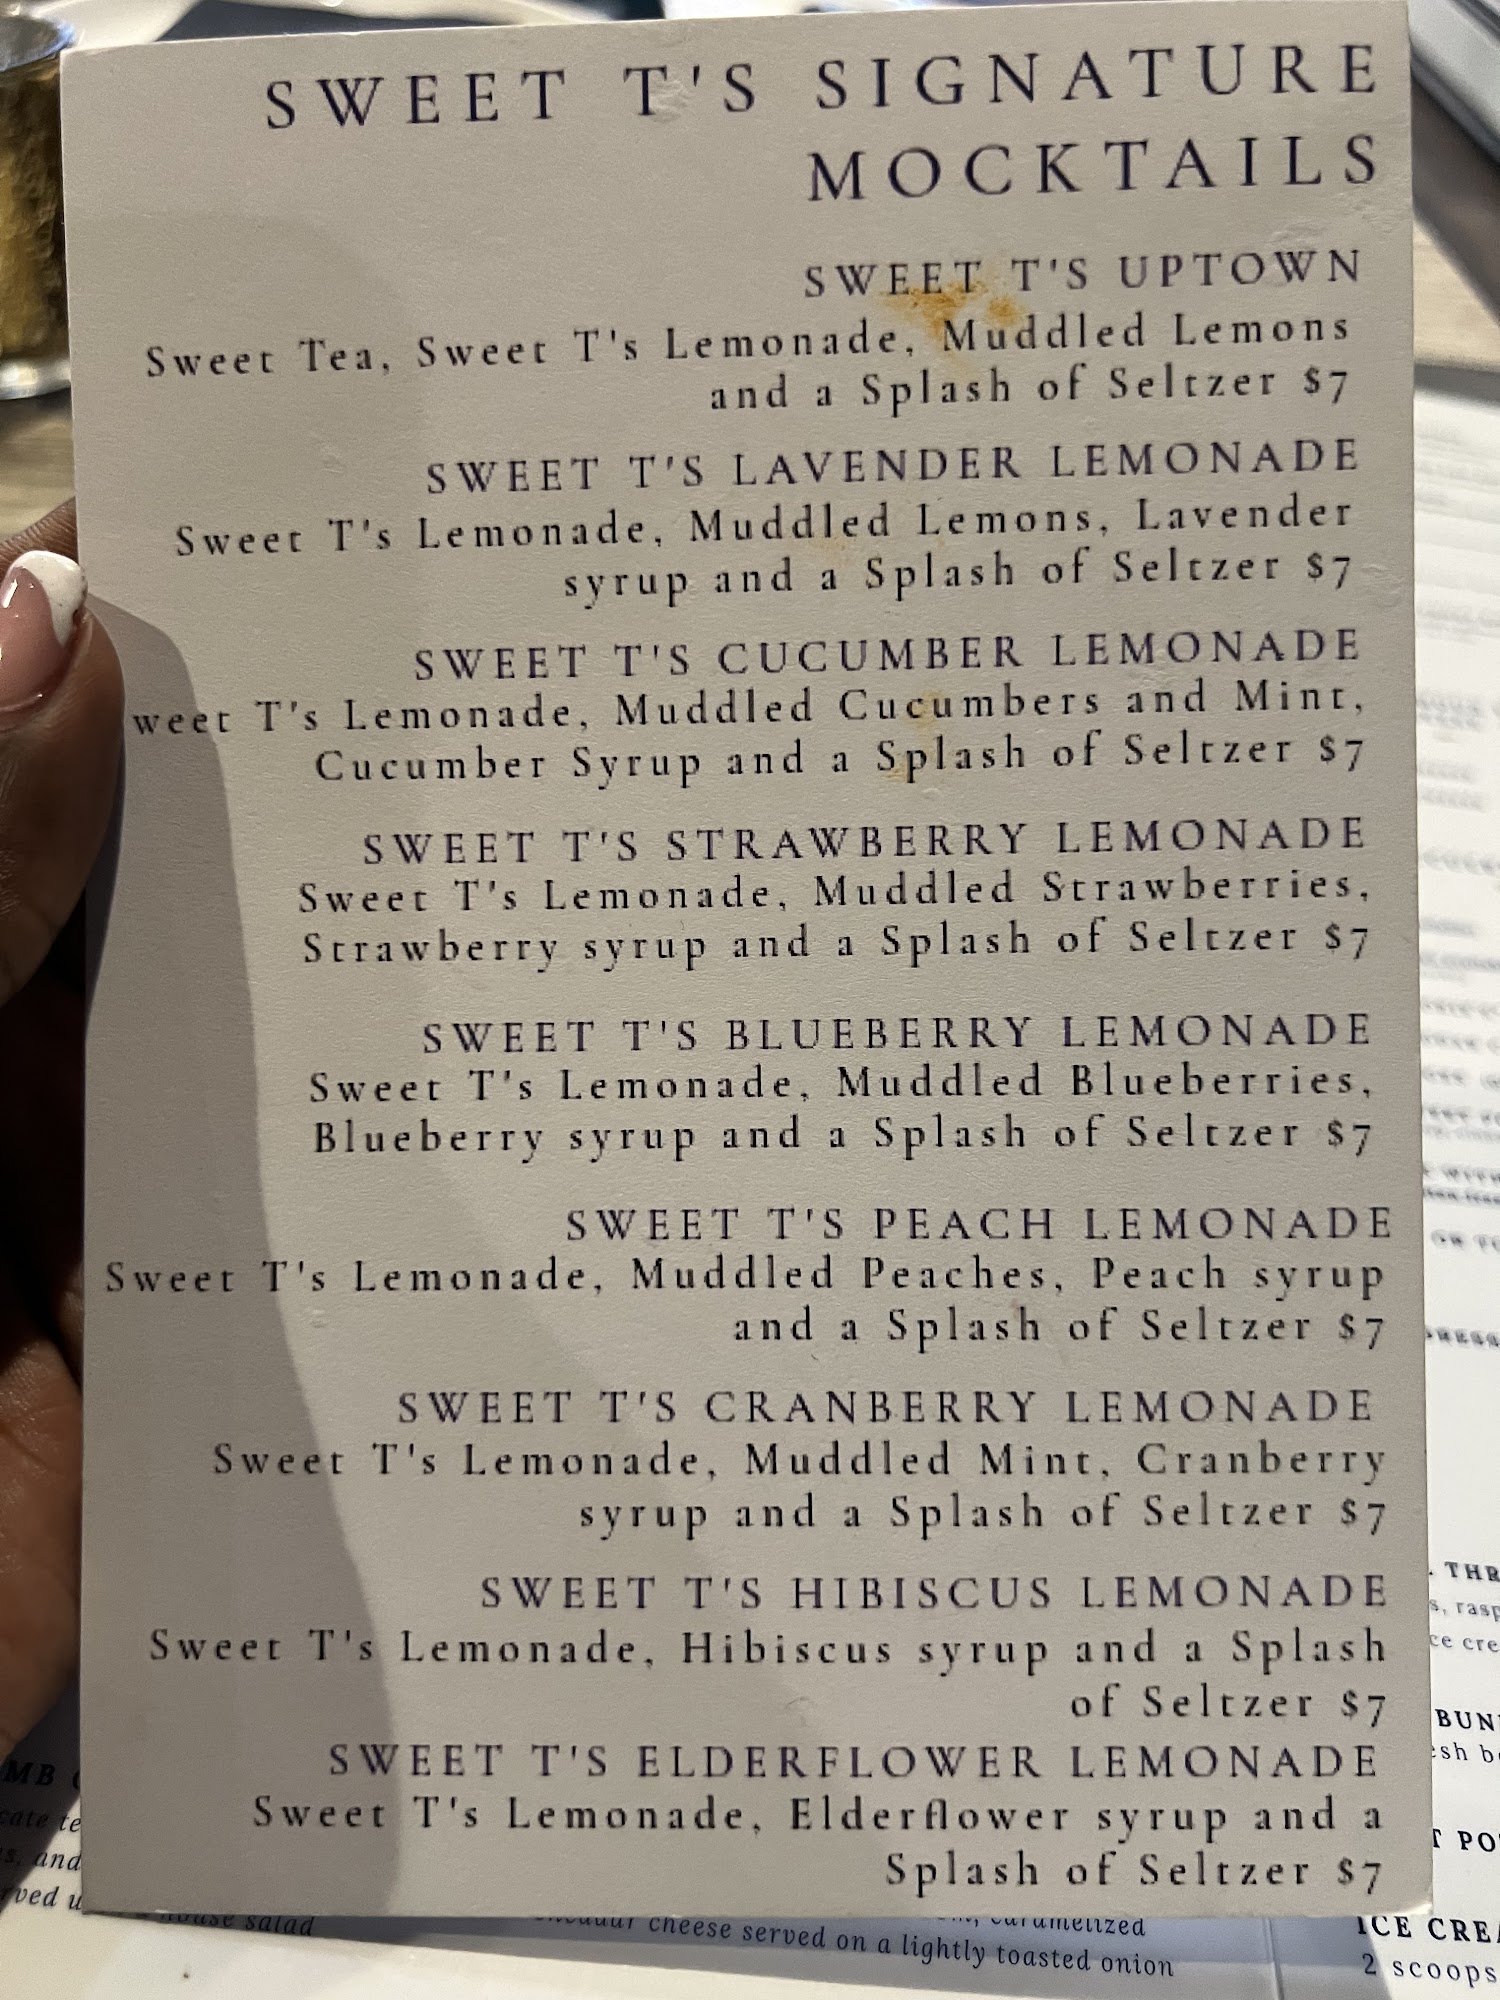 SWEET T'S SIGNATURE
MOCKTAILS
SWEET T'S UPTOWN
Sweet Tea, Sweet T's Lemonade, Muddled Lemons
and a Splash of Seltzer $7
SWEET T'S LAVENDER LEMONADE
Sweet T's Lemonade, Muddled Lemons, Lavender
syrup and a Splash of Seltzer $7
SWEET T'S CUCUMBER LEMONADE
weet T's Lemonade, Muddled Cucumbers and Mint,
Cucumber Syrup and a Splash of Seltzer $7
SWEET T'S STRAWBERRY LEMONADE
Sweet T's Lemonade, Muddled Strawberries,
Strawberry syrup and a Splash of Seltzer $7
SWEET T'S BLUEBERRY LEMONADE
Sweet T's Lemonade, Muddled Blueberries,
Blueberry syrup and a Splash of Seltzer $7
SWEET T'S PEACH LEMONADE
Sweet T's Lemonade, Muddled Peaches, Peach syrup
and a Splash of Seltzer $7
SWEET T'S CRANBERRY LEMONADE
Sweet T's Lemonade, Muddled Mint, Cranberry
syrup and a Splash of Seltzer $7
SWEET T'S HIBISCUS LEMONADE
Sweet T's Lemonade, Hibiscus syrup and a Splash
of Seltzer $7
SWEET T'S ELDERFLOWER LEMONADE
Sweet T's Lemonade, Elderflower syrup and a
Splash of Seltzer $7
house salad
caramelized
cheese served on a lightly toasted onion
ICE CREA
2 scoops